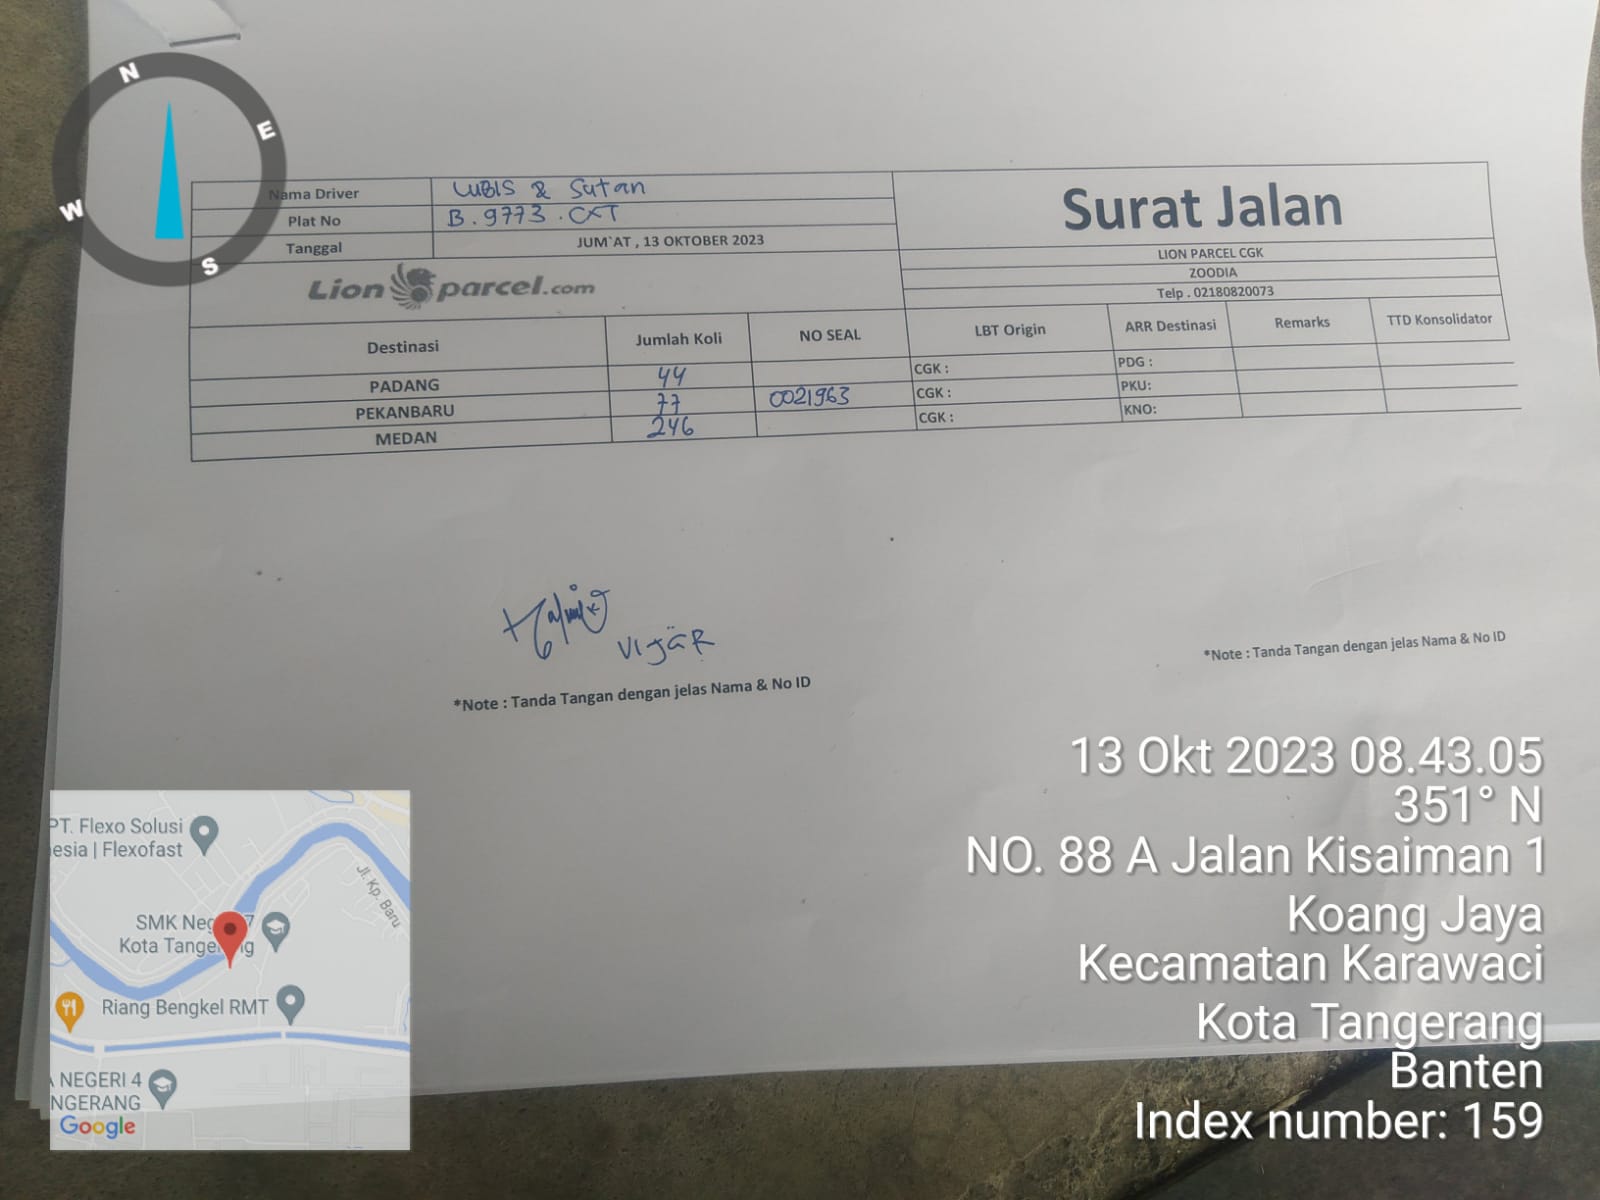 N
E
W
S
Nama Driver LUBIS & Sutan
Plat No B. 9773 . CXT
Tanggal JUM`AT , 13 OKTOBER 2023
Surat Jalan
LION PARCEL CGK
ZOODIA
Telp . 02180820073
Lion parcel.com
Destinasi Jumlah Koli NO SEAL LBT Origin ARR Destinasi Remarks TTD Konsolidator
PADANG 44 CGK : PDG :
PEKANBARU 77 0021963 CGK : PKU:
MEDAN 246 CGK : KNO:
VIJäR
*Note : Tanda Tangan dengan jelas Nama & No ID
*Note : Tanda Tangan dengan jelas Nama & No ID
13 Okt 2023 08.43.05
351° N
NO. 88 A Jalan Kisaiman 1
Koang Jaya
Kecamatan Karawaci
Kota Tangerang
Banten
Index number: 159
PT. Flexo Solusi
esia | Flexofast
Jl. Kp. Baru
SMK Neg 7
Kota Tange ng
Riang Bengkel RMT
NEGERI 4
NGERANG
Google